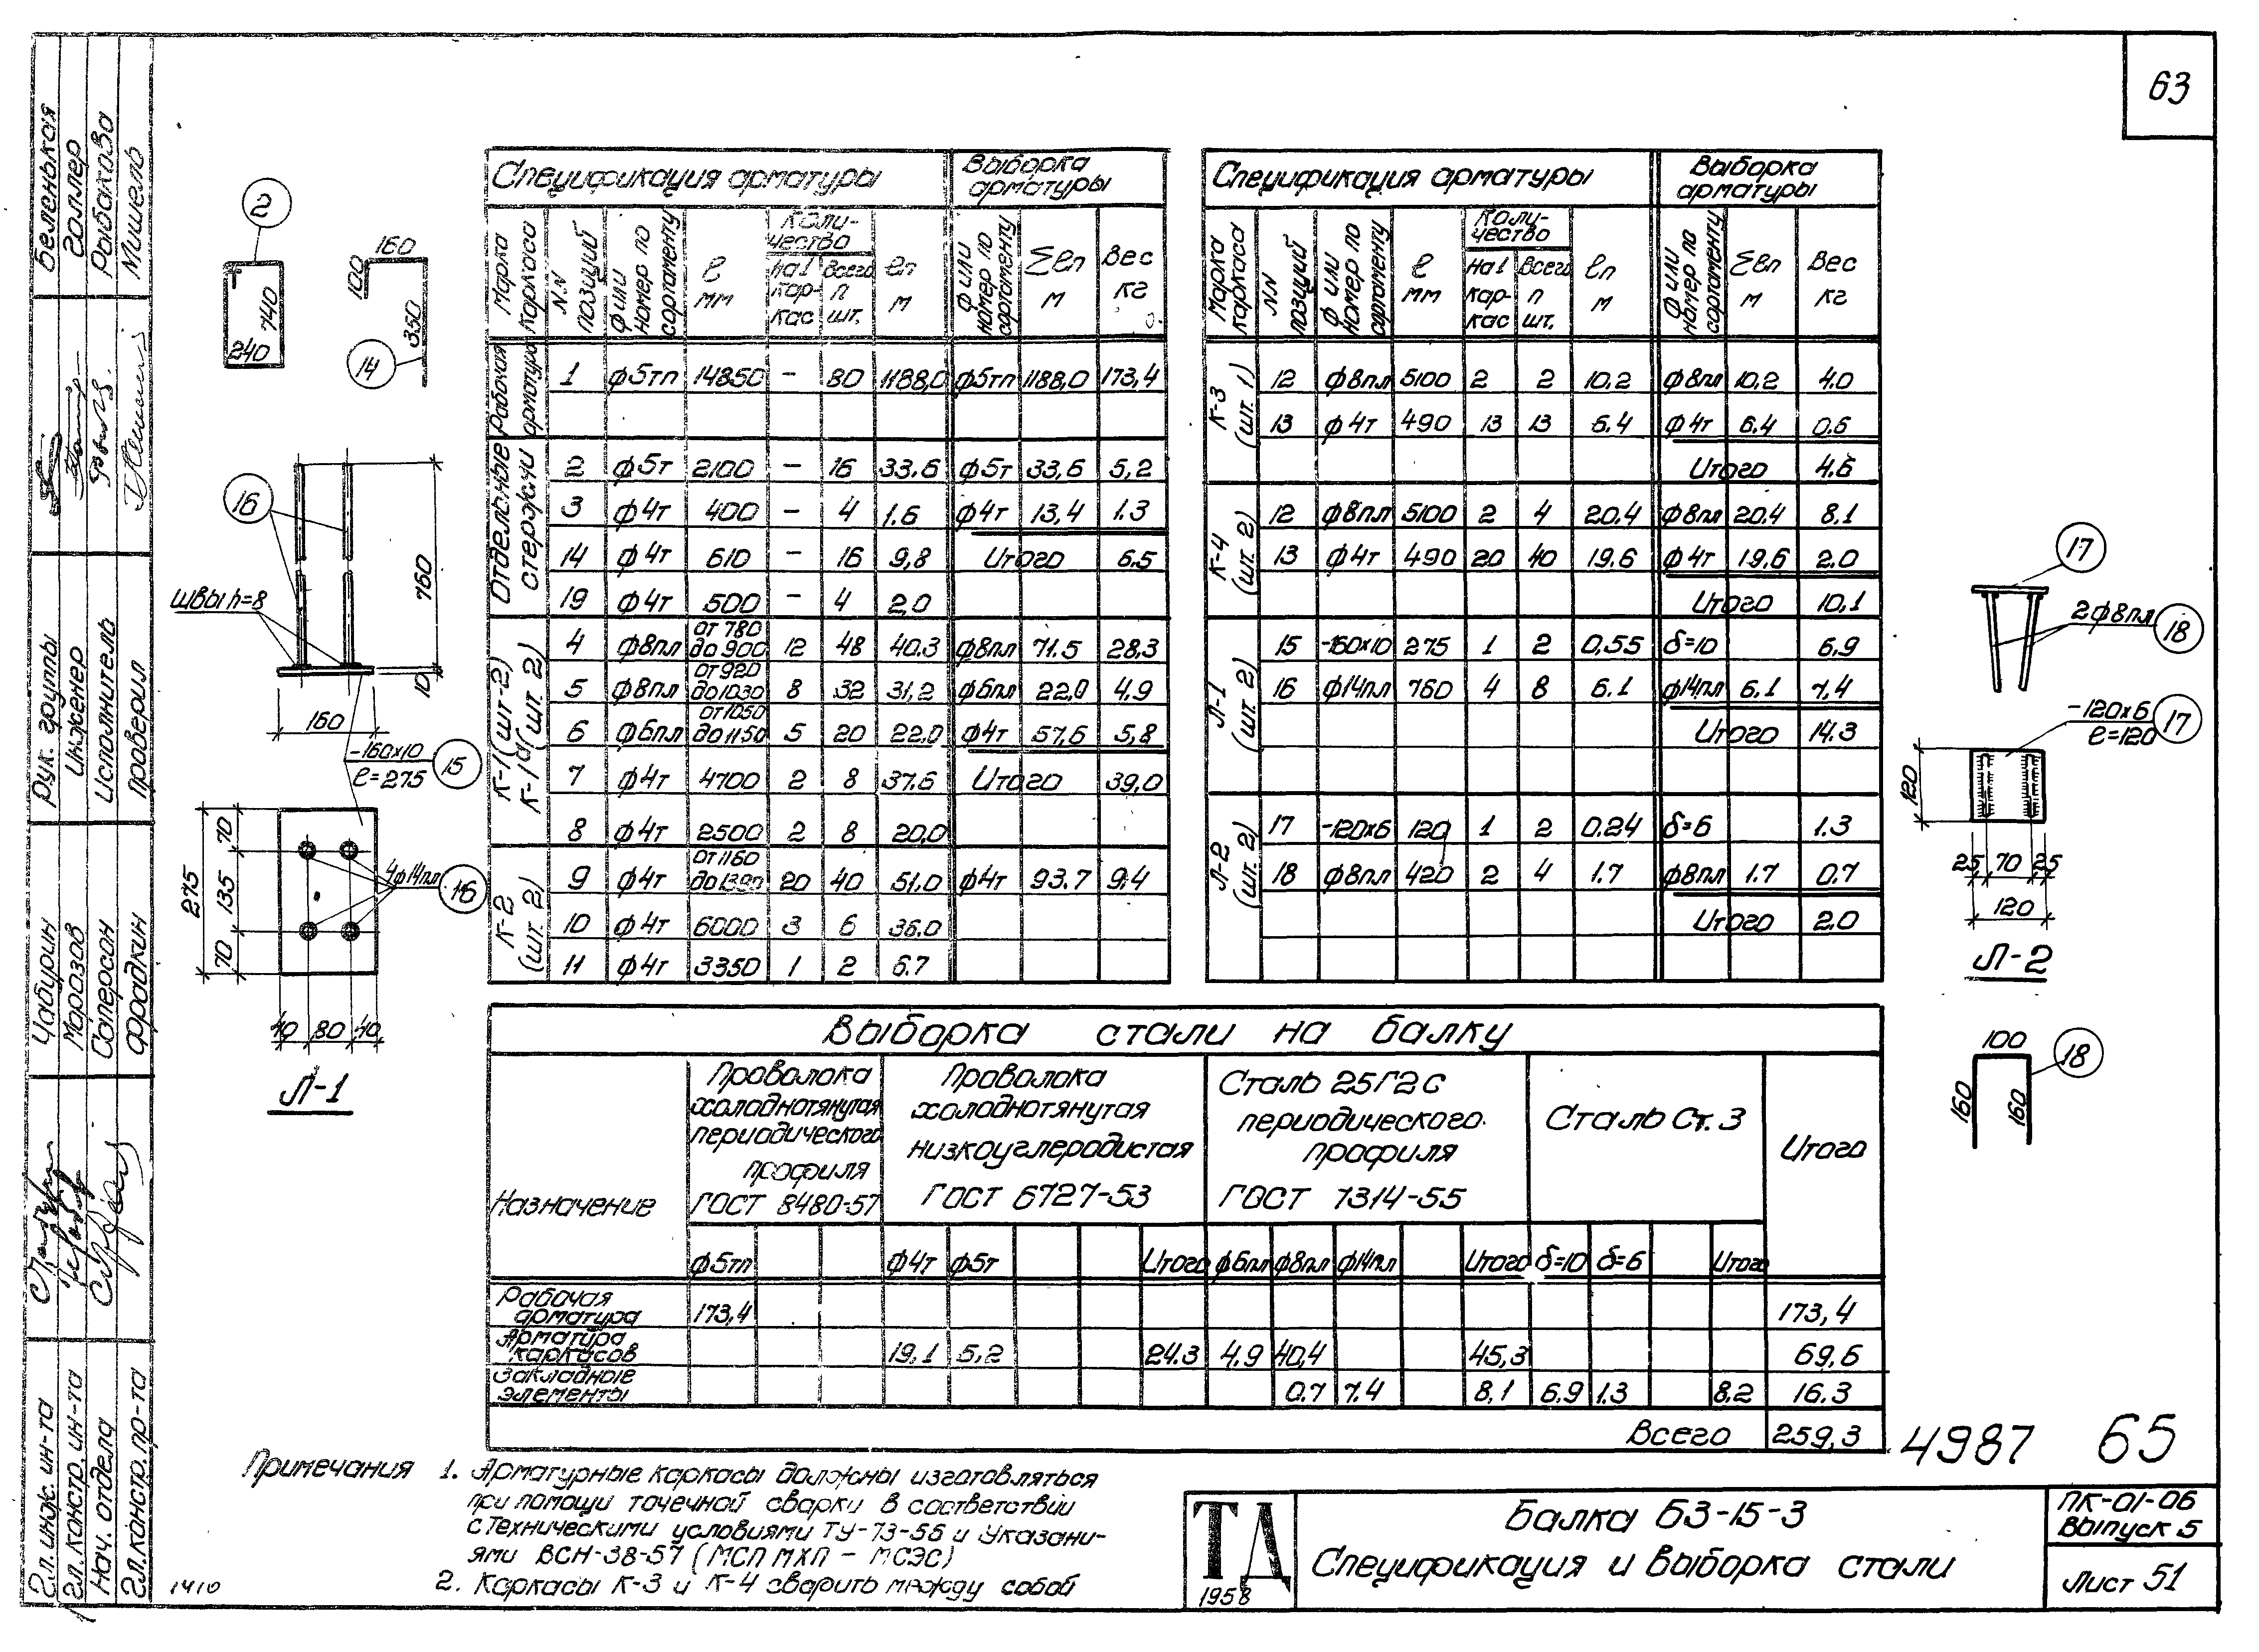 63
Спецификация арматуры
Выборка арматуры
Марка каркаса
NN позиций
ф или номер по сортаменту
ℓ мм
Количество
на 1 каркас
Всего n шт.
ℓn м
ф или номер по сортаменту
Σℓn м
Вес кг
Рабочая арматура
1 ф5тп 14850 – 80 1188,0 ф5тп 1188,0 173,4
Отдельные стержни
2 ф5т 2100 – 16 33.6 ф5т 33,6 5,2
3 ф4т 400 – 4 1.6 ф4т 13,4 1.3
14 ф4т 610 – 16 9,8 Итого 6.5
19 ф4т 500 – 4 2,0
К-1 (шт-2)
К-1а (шт. 2)
4 ф8пл от 780 до 900 12 48 40.3 ф8пл 71.5 28,3
5 ф8пл от 920 до 1030 8 32 31,2 ф6пл 22,0 4.9
6 ф6пл от 1050 до 1150 5 20 22.0 ф4т 57,6 5,8
7 ф4т 4700 2 8 37.6 Итого 39,0
8 ф4т 2500 2 8 20,0
К-2 (шт. 2)
9 ф4т от 1160 до 1390 20 40 51.0 ф4т 93.7 9,4
10 ф4т 6000 3 6 36.0
11 ф4т 3350 1 2 6.7
Спецификация арматуры
Выборка арматуры
Марка каркаса
NN позиций
ф или номер по сортаменту
ℓ мм
Количество
на 1 каркас
Всего n шт.
ℓn м
ф или номер по сортаменту
Σℓn м
Вес кг
К-3 (шт. 1)
12 ф8пл 5100 2 2 10,2 ф8пл 10,2 4.0
13 ф4т 490 13 13 6.4 ф4т 6.4 0.6
Итого 4.6
К-4 (шт. 2)
12 ф8пл 5100 2 4 20.4 ф8пл 20.4 8.1
13 ф4т 490 20 40 19.6 ф4т 19.6 2.0
Итого 10,1
Л-1 (шт. 2)
15 -160х10 275 1 2 0,55 δ=10 6,9
16 ф14пл 760 4 8 6.1 ф14пл 6.1 7.4
Итого 14.3
Л-2 (шт. 2)
17 -120х6 120 1 2 0.24 δ=6 1.3
18 ф8пл 420 2 4 1.7 ф8пл 1.7 0.7
Итого 2.0
Выборка стали на балку
Назначение
Проволока холоднотянутая периодического профиля ГОСТ 8480-57
Проволока холоднотянутая низкоуглеродистая ГОСТ 6727-53
Сталь 25Г2С периодического профиля ГОСТ 7314-55
Сталь Ст. 3
Итого
ф5тп ф4т ф5т Итого ф6пл ф8пл ф14пл Итого δ=10 δ=6 Итого
Рабочая арматура 173,4 173,4
Арматура каркасов 19,1 5,2 24.3 4.9 40,4 45,3 69,6
Закладные элементы 0.7 7.4 8,1 6.9 1.3 8.2 16.3
Всего 259,3
2
240
740
160
100
350
14
16
швы h=8
760
10
160
-160х10
ℓ=275
15
275
70
135
70
4ф14пл
16
40 80 40
Л-1
17
2ф8пл
18
-120х6
ℓ=120
17
120
25 70 25
120
Л-2
100
18
160
160
Примечания
1. Арматурные каркасы должны изготовляться
при помощи точечной сварки в соответствии
с Техническими условиями ТУ-73-56 и Указани-
ями ВСН-38-57 (МСПМХП – МСЭС)
2. Каркасы К-3 и К-4 сварить между собой
4987 65
ТД
1958
Балка Б3-15-3
Спецификация и выборка стали
ПК-01-06
Выпуск 5
Лист 51
1410
Беленькая
Голлер
Рыбакова
Мишель
Рук. группы
Инженер
Исполнитель
Проверил
Чабурин
Морозов
Саперсон
Фрадкин
Гл. инж. ин-та
Гл. констр. ин-та
Нач. отдела
Гл. констр. пр-та